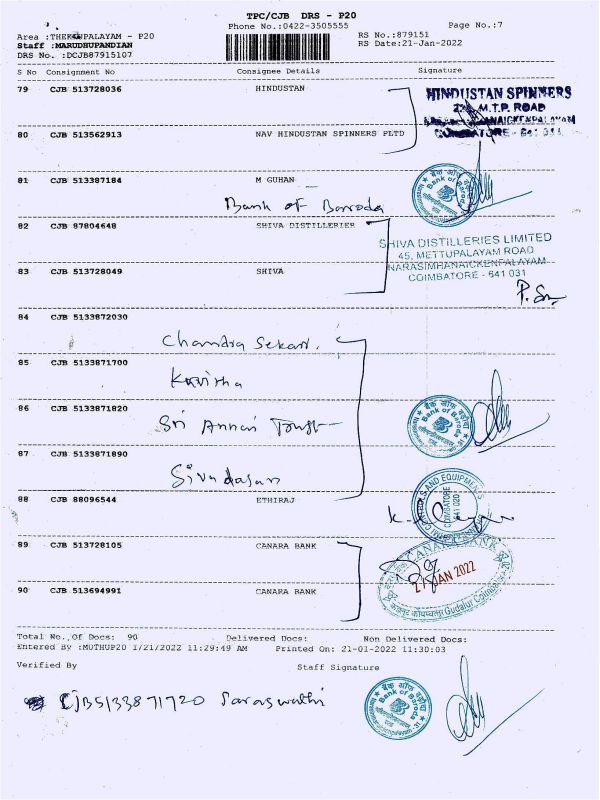 TPC/CJB DRS - P20
Phone No.:0422-3505555 Page No.:7
Area :THEKKUPALAYAM - P20 RS No.:879151
Staff :MARUDHUPANDIAN RS Date:21-Jan-2022
DRS No. :DCJB87915107
S No Consignment No Consignee Details Signature
79 CJB 513728036 HINDUSTAN
HINDUSTAN SPINNERS
M.T.P. ROAD
COIMBATORE - 641 031
80 CJB 513562913 NAV HINDUSTAN SPINNERS PLTD
81 CJB 513387184 M GUHAN
Bank of Baroda
Bank of Baroda
82 CJB 87804648 SHIVA DISTILLERIES
SHIVA DISTILLERIES LIMITED
45, METTUPALAYAM ROAD
NARASIMHANAICKENPALAYAM
COIMBATORE - 641 031
83 CJB 513728049 SHIVA
84 CJB 5133872030
Chandra Sekar.
85 CJB 5133871700
Kavitha
86 CJB 5133871820
Sri Annai Trust
बैंक ऑफ़ बड़ौदा
Bank of Baroda
87 CJB 5133871890
Sivadasan
88 CJB 88096544 ETHIRAJ
COIMBATORE
641 020
89 CJB 513728105 CANARA BANK
CANARA BANK
JAN 2022
90 CJB 513694991 CANARA BANK
Gudalur Coimbatore
Total No. Of Docs: 90 Delivered Docs: Non Delivered Docs:
Entered By :MUTHUP20 1/21/2022 11:29:49 AM Printed On: 21-01-2022 11:30:03
Verified By Staff Signature
CJB5133871720 Saraswathi
बैंक ऑफ़ बड़ौदा
Bank of Baroda